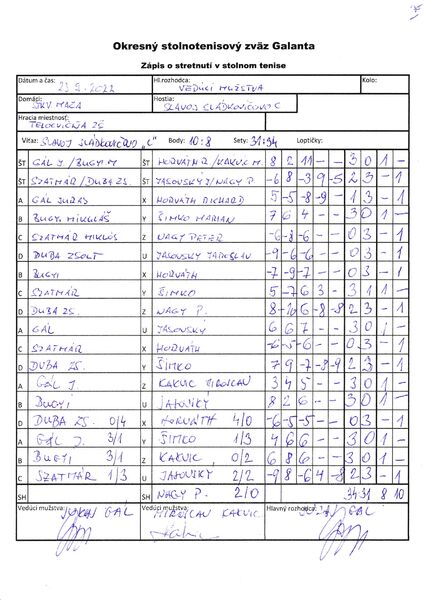 Okresný stolnotenisový zväz Galanta
Zápis o stretnutí v stolnom tenise
Dátum a čas: Hl.rozhodca: Kolo:
23.9.2022 VEDÚCI MUŽSTVA
Domáci: Hostia:
ŠKV MAZA SLAVOJ SLÁDKOVIČOVO C
Hracia miestnosť:
TELOCVIČŇA ZŠ
Víťaz: SLAVOJ SLÁDKOVIČOVO "C" Body: 10:8 Sety: 31:34 Loptičky:
ŠT GÁL J./BUGYI M ŠT HORVÁTH R/KAKVIC M. 8 2 11 - - 3 0 1 -
ŠT SZATMÁR/DUBA ZS. ŠT JASOVSKÝ J/NAGY P. -6 8 -3 9 -5 2 3 - 1
A GÁL JURAJ X HORVÁTH RICHARD 5 -5 -8 -9 - 1 3 - 1
B BUGYI MIKULÁŠ Y ŠIMKO MARIAN 7 6 4 - - 3 0 1 -
C SZATMÁR MIKLÓS Z NAGY PETER -6 -8 -6 - - 0 3 - 1
D DUBA ZSOLT U JASOVSKÝ JAROSLAV -9 -6 -6 - - 0 3 - 1
B BUGYI X HORVÁTH -7 -9 -7 - - 0 3 - 1
C SZATMÁR Y ŠIMKO 5 -7 6 3 - 3 1 1 -
D DUBA ZS. Z NAGY P. 8 -10 6 -8 -8 2 3 - 1
A GÁL U JASOVSKÝ 6 6 7 - - 3 0 1 -
C SZATMÁR X HORVÁTH -6 -5 -6 - - 0 3 - 1
D DUBA ZS. Y ŠIMKO 7 9 -7 -3 -9 2 3 - 1
A GÁL J Z KAKVIC MIROSLAV 3 4 5 - - 3 0 1 -
B BUGYI U JASOVSKÝ 8 2 6 - - 3 0 1 -
D DUBA ZS. 0/4 X HORVÁTH 4/0 -6 -5 -5 - - 0 3 - 1
A GÁL J. 3/1 Y ŠIMKO 1/3 4 6 6 - - 3 0 1 -
B BUGYI 3/1 Z KAKVIC 0/2 6 8 6 - - 3 0 1 -
C SZATMÁR 1/3 U JASOVSKÝ 2/2 -9 8 -6 4 -8 2 3 - 1
SH ŠH NAGY P. 2/0 34 31 8 10
Vedúci mužstva: Vedúci mužstva: Hlavný rozhodca:
GÁL MIROSLAV KAKVIC GÁL